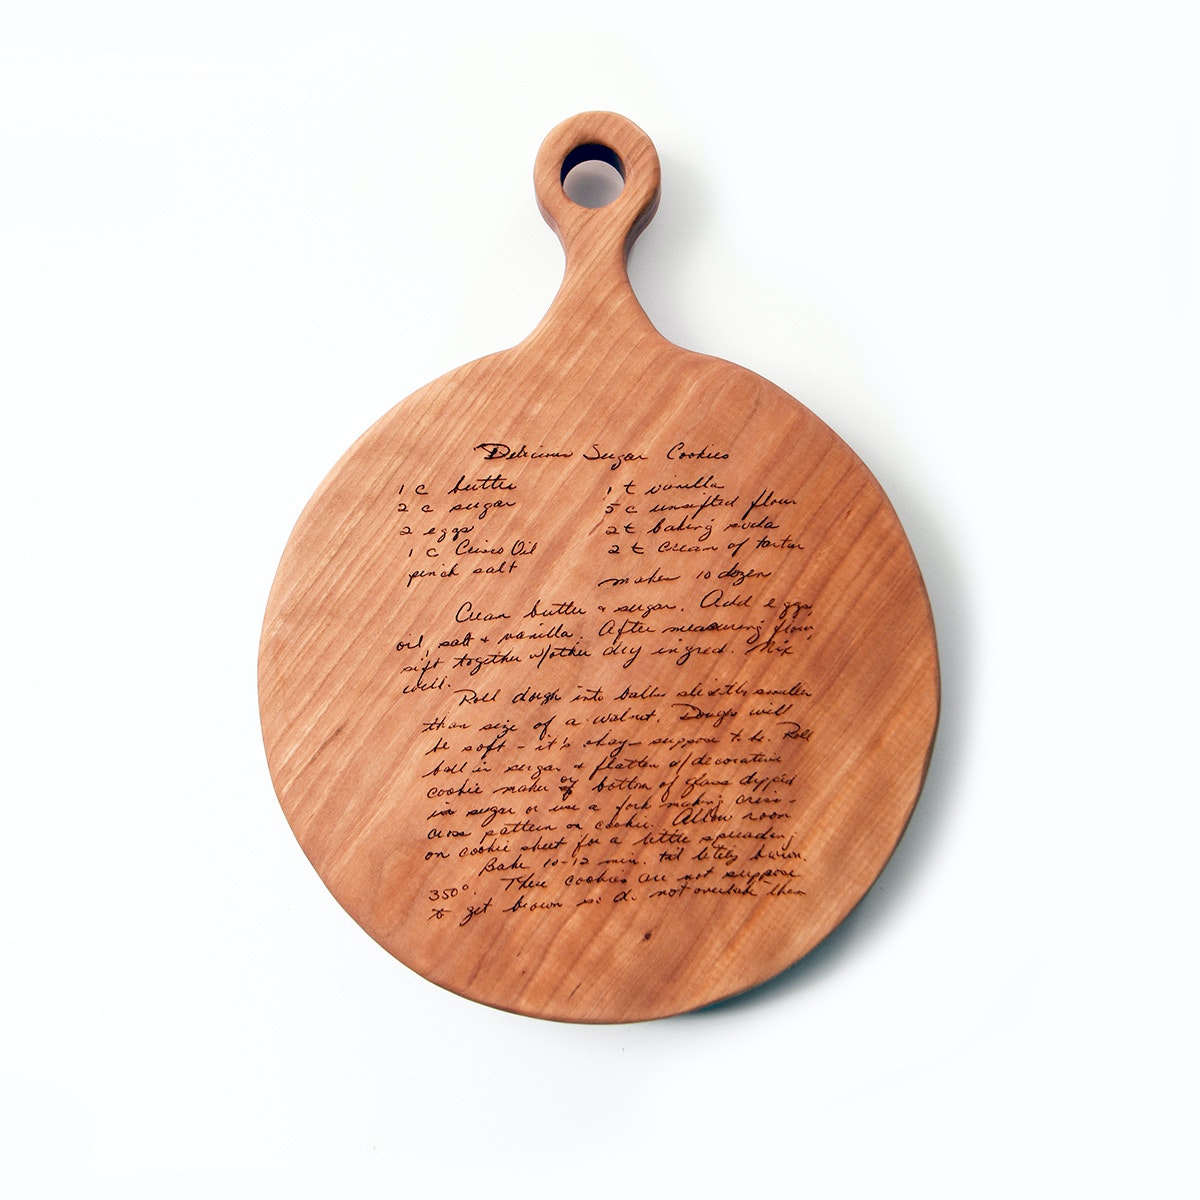 Delicious Sugar Cookies
1 c butter
2 c sugar
2 eggs
1 c Crisco Oil
pinch salt
1 t vanilla
5 c unsifted flour
2 t baking soda
2 t cream of tartar
makes 10 dozen
Cream butter + sugar. Add eggs,
oil, salt + vanilla. After measuring flour,
sift together w/other dry ingred. Mix
well.
Roll dough into balls slightly smaller
than size of a walnut. Dough will
be soft - it's okay - suppose to be. Roll
ball in sugar + flatten w/decorative
cookie maker or bottom of glass dipped
in sugar or use a fork making criss-
cross pattern on cookie. Allow room
on cookie sheet for a little spreading
Bake 10-12 min. til lightly brown.
350°. These cookies are not suppose
to get brown so do not overbake them